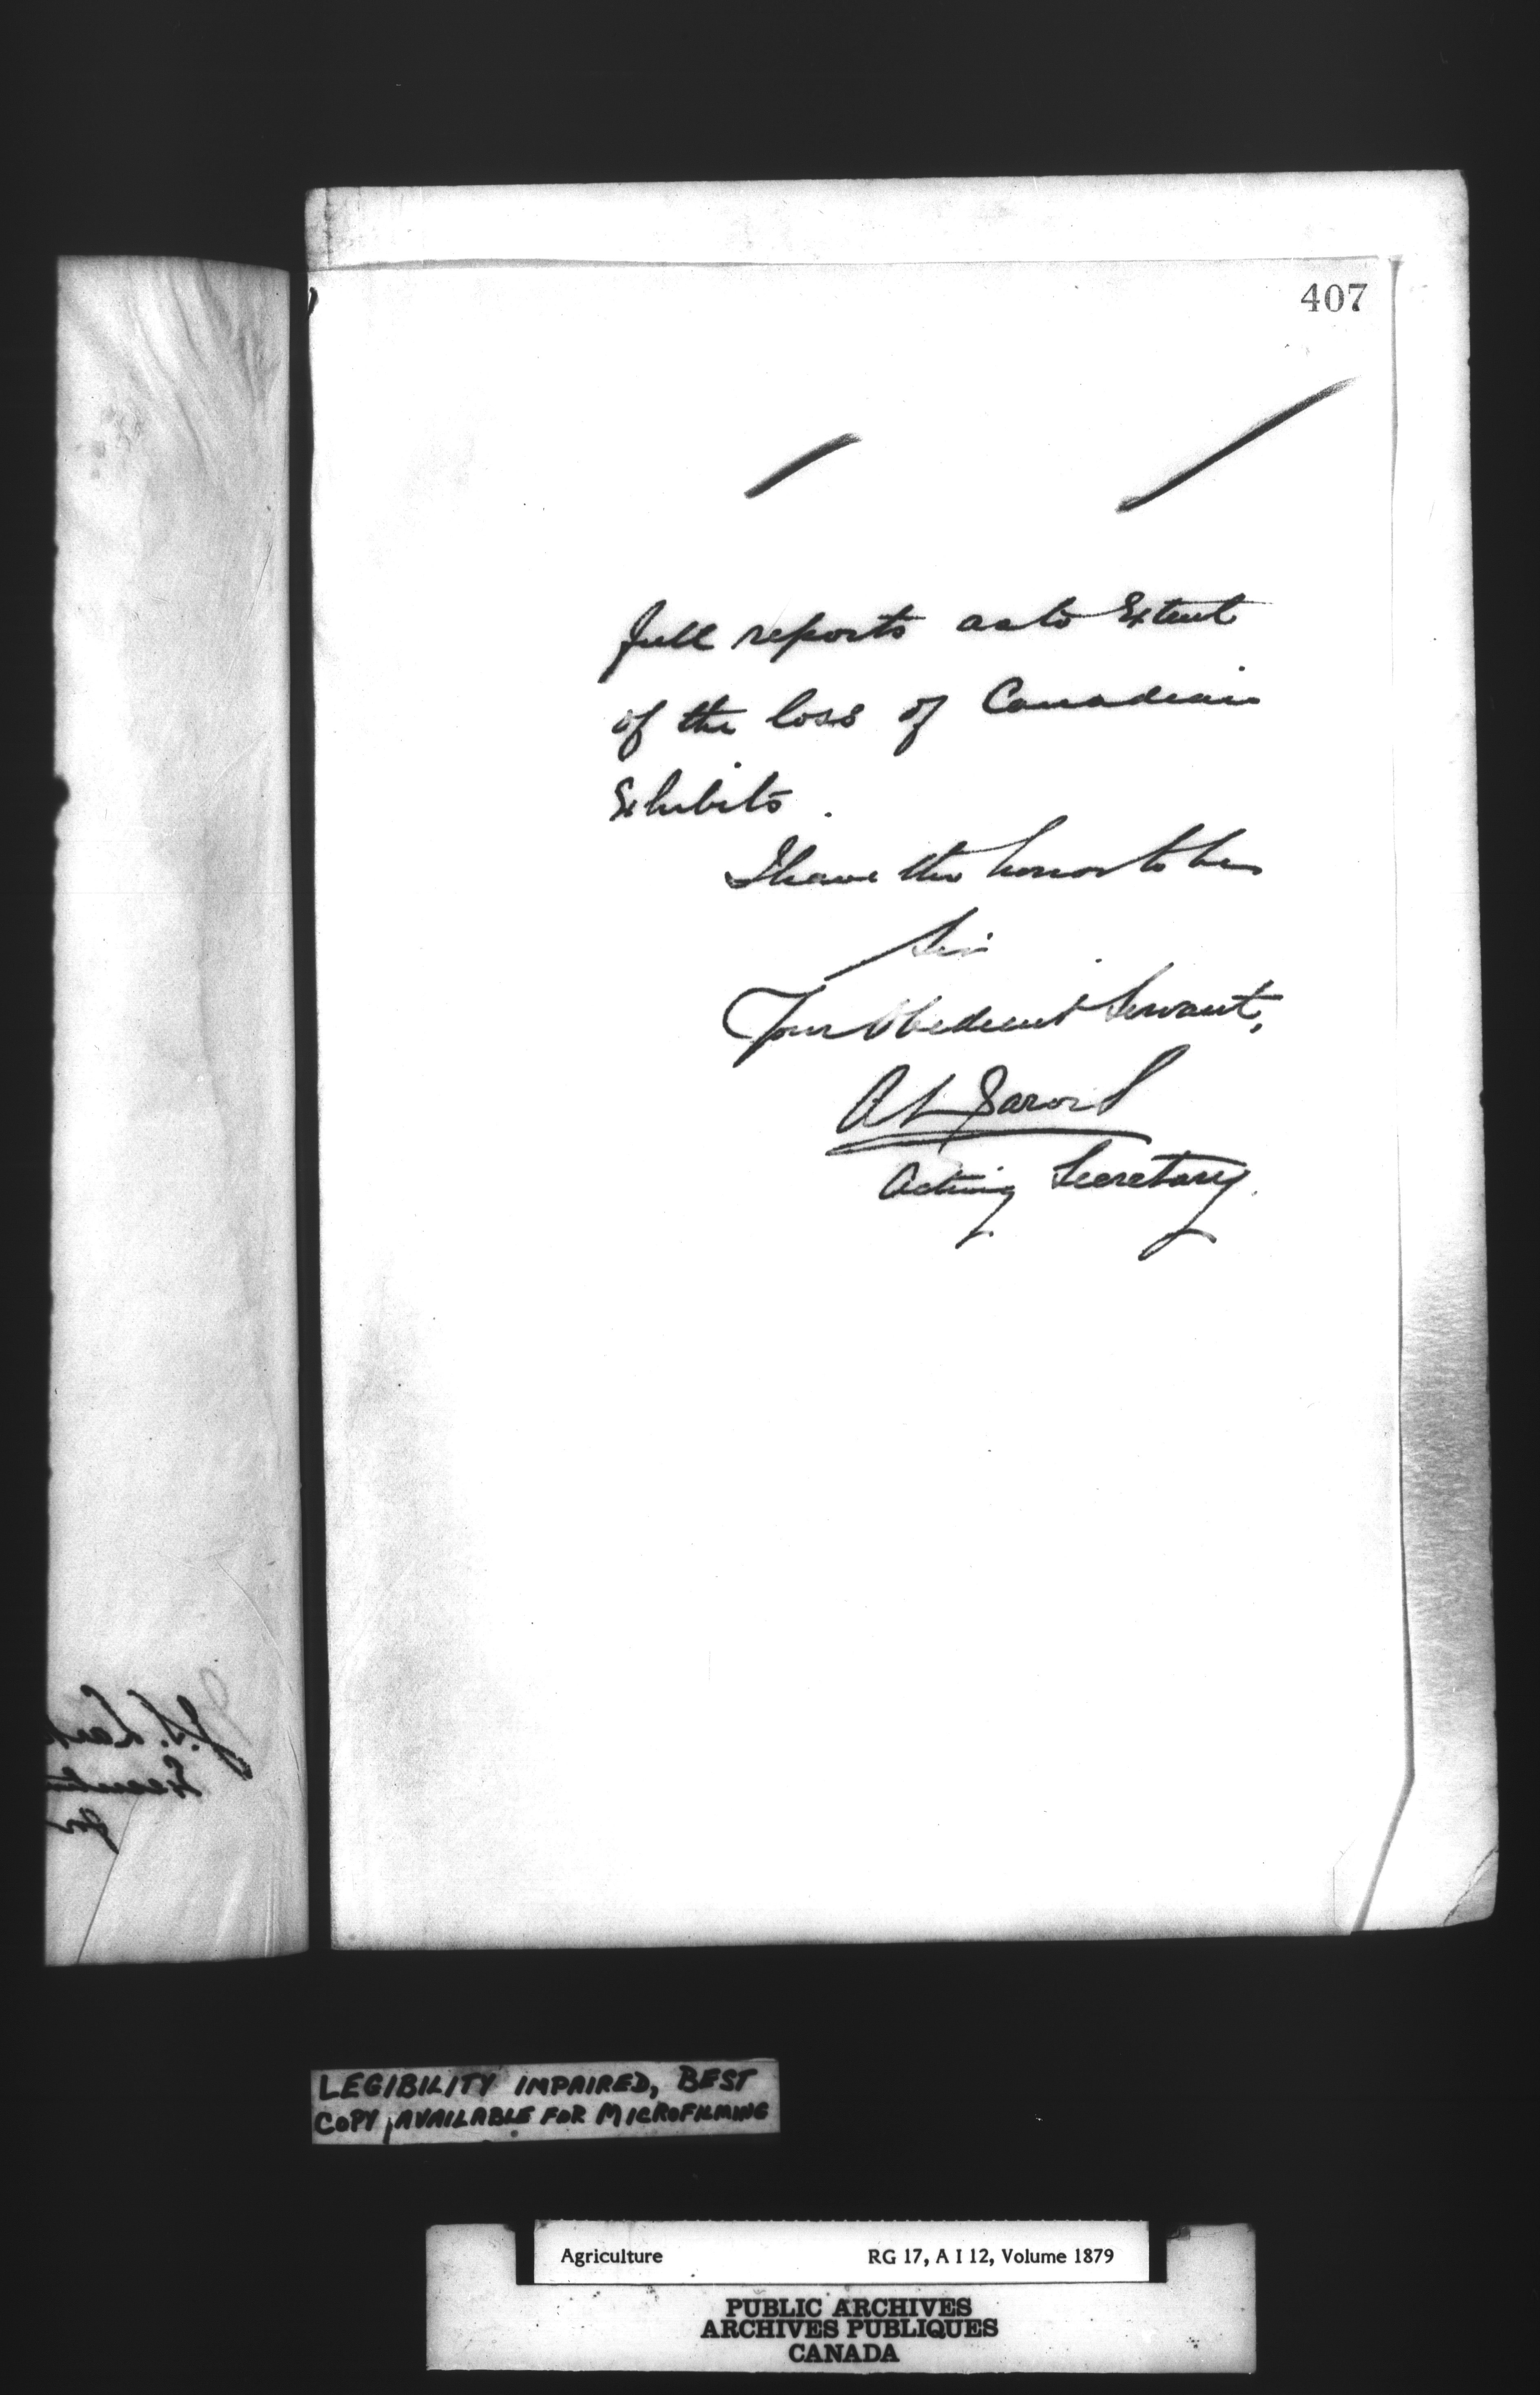 407
full reports as to Extent
of the loss of Canadian
Exhibits.
I have the honor to be
Sir
Your Obedient Servant,
A L Jarvis
Acting Secretary.
J.S. Lark
Executi
for
LEGIBILITY IMPAIRED, BEST
COPY AVAILABLE FOR MICROFILMING
Agriculture RG 17, A I 12, Volume 1879
PUBLIC ARCHIVES
ARCHIVES PUBLIQUES
CANADA